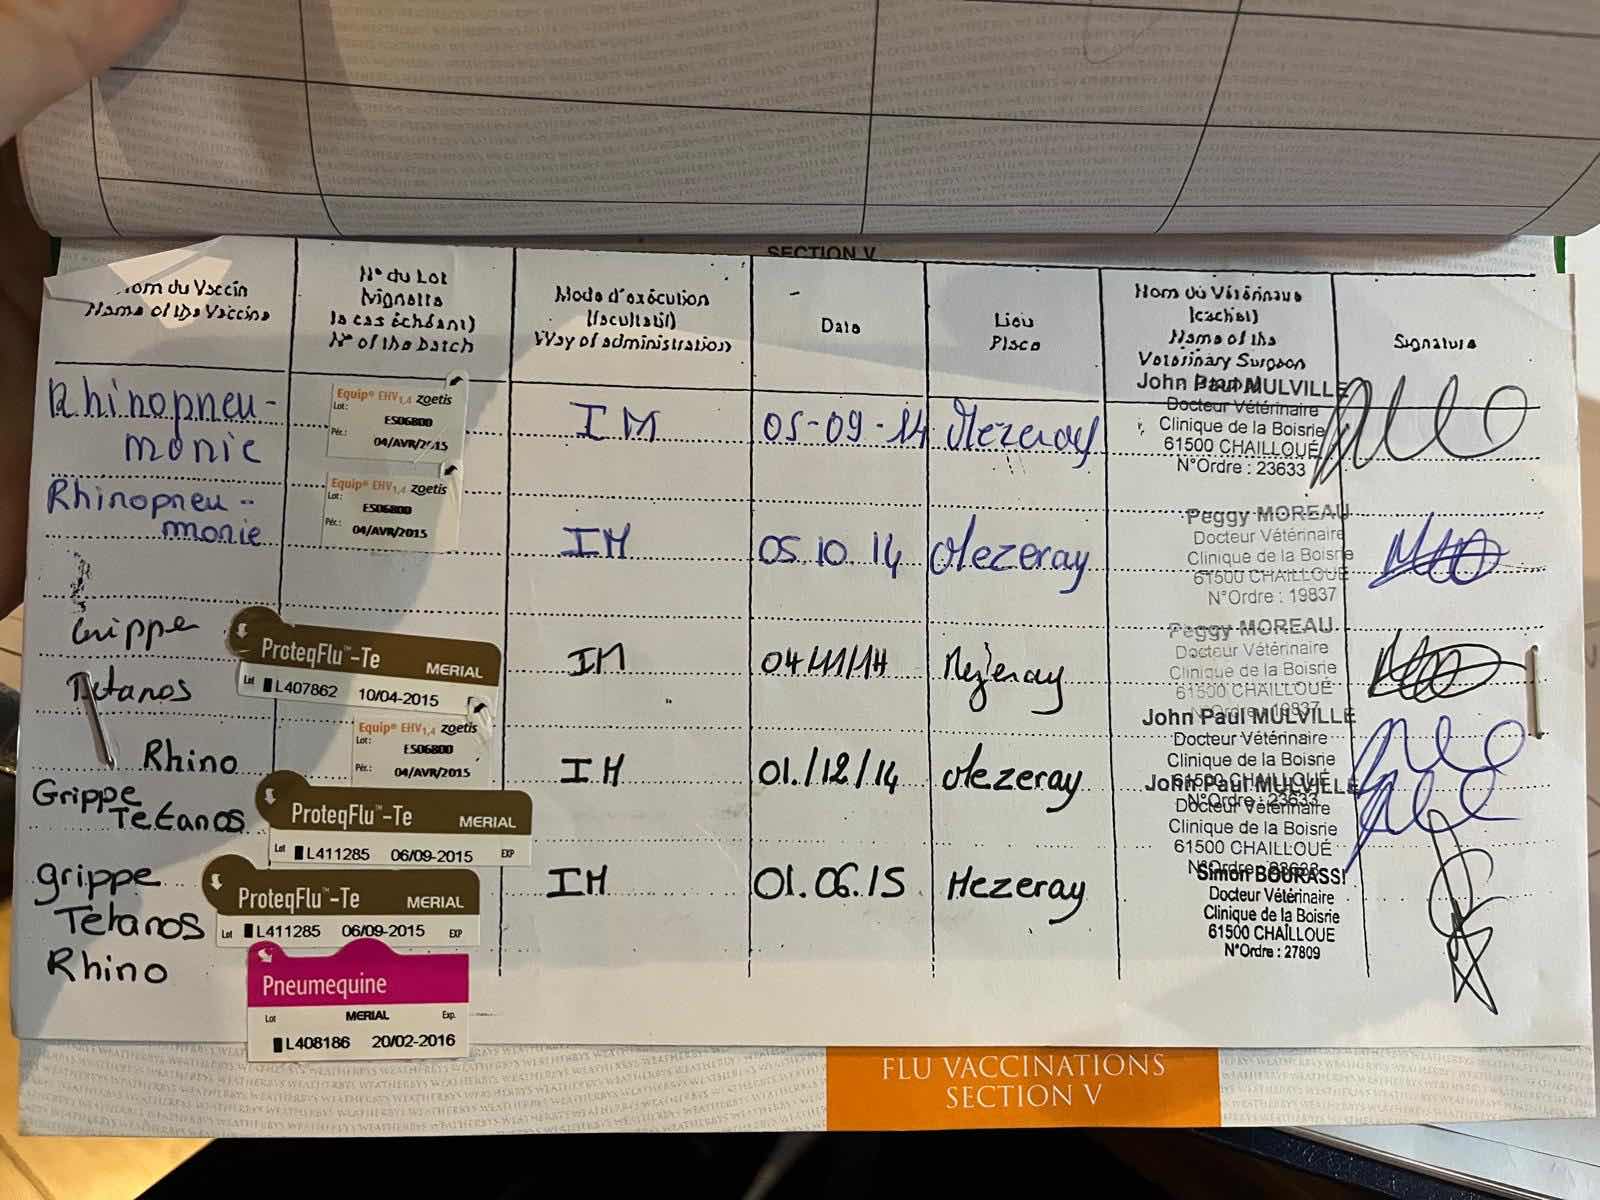 SECTION V
Nom du Vaccin
Name of the Vaccine
N° du Lot
Vignette
(le cas échéant)
N° of the batch
Mode d'exécution
(facultatif)
Way of administration
Date
Lieu
Place
Nom du Vétérinaire
(cachet)
Name of the
Veterinary Surgeon
Signature
Rhinopneu-
monie
Equip® EHV1,4 zoetis
Lot:
ES06800
Pér.:
04/AVR/2015
IM
05-09-14
Mezeray
John Paul MULVILLE
Docteur Vétérinaire
Clinique de la Boisrie
61500 CHAILLOUÉ
N°Ordre : 23633
Rhinopneu-
monie
Equip® EHV1,4 zoetis
Lot:
ES06800
Pér.:
04/AVR/2015
IM
05.10.14
Mezeray
Peggy MOREAU
Docteur Vétérinaire
Clinique de la Boisrie
61500 CHAILLOUÉ
N°Ordre : 19837
Grippe
Tetanos
ProteqFlu™-Te MERIAL
Lot L407862 10/04-2015
IM
04/11/14
Mezeray
Peggy MOREAU
Docteur Vétérinaire
Clinique de la Boisrie
61500 CHAILLOUÉ
N°Ordre : 19837
Rhino
Grippe
Tetanos
Equip® EHV1,4 zoetis
Lot:
ES06800
Pér.:
04/AVR/2015
ProteqFlu™-Te MERIAL
Lot L411285 06/09-2015 EXP
IM
01./12/14
Mezeray
John Paul MULVILLE
Docteur Vétérinaire
Clinique de la Boisrie
61500 CHAILLOUÉ
N°Ordre : 23633
John Paul MULVILLE
Docteur Vétérinaire
Clinique de la Boisrie
61500 CHAILLOUÉ
N°Ordre : 23633
grippe
Tetanos
Rhino
ProteqFlu™-Te MERIAL
Lot L411285 06/09-2015 EXP
Pneumequine
Lot MERIAL Exp.
L408186 20/02-2016
IM
01.06.15
Mezeray
Simon BOURASSI
Docteur Vétérinaire
Clinique de la Boisrie
61500 CHAILLOUE
N°Ordre : 27809
FLU VACCINATIONS
SECTION V